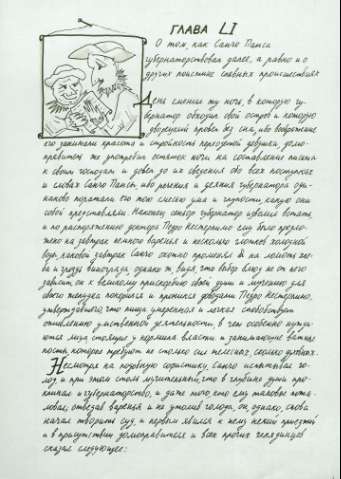 ГЛАВА LI
О том, как Санчо Панса
губернаторствовал далее, а равно и о
других поистине славных происшествиях
День сменил ту ночь, в которую гу-
бернатор обходил свой остров и которую
дворецкий провел без сна, ибо воображение
его занимали красота и стройность переодетой девушки, домо-
правитель же употребил остаток ночи на составление письма
к своим господам и довел до их сведения обо всех поступках
и словах Санчо Пансы, ибо речения и деяния губернатора оди-
наково поражали его тою смесью ума и глупости, какую они
собой представляли. Наконец сеньор губернатор изволил встать,
и по распоряжению доктора Педро Нестерпимо ему было предло-
жено на завтрак немного варенья и несколько глотков холодной
воды, каковой завтрак Санчо охотно променял бы на ломоть хле-
ба и гроздь винограда, однако ж, видя, что выбор блюд не от него
зависит, он к великому прискорбию своей души и мучению для
своего желудка покорился и проникся доводами Педро Нестерпимо,
утверждавшего, что пища умеренная и легкая способствует
оживлению умственной деятельности, в чем особенно нужда-
ются лица, стоящие у кормила власти и занимающие важные
посты, которые требуют не столько сил телесных, сколько духовных.
Несмотря на подобную софистику, Санчо испытывал го-
лод и при этом столь мучительный, что в глубине души про-
клинал и губернаторство, и даже того, кто ему таковое пожа-
ловал; отведав варенья и не утолив голода, он, однако, снова
начал творить суд, и первым явился к нему некий приезжий
и в присутствии домоправителя и всех прочих челядинцев
сказал следующее: